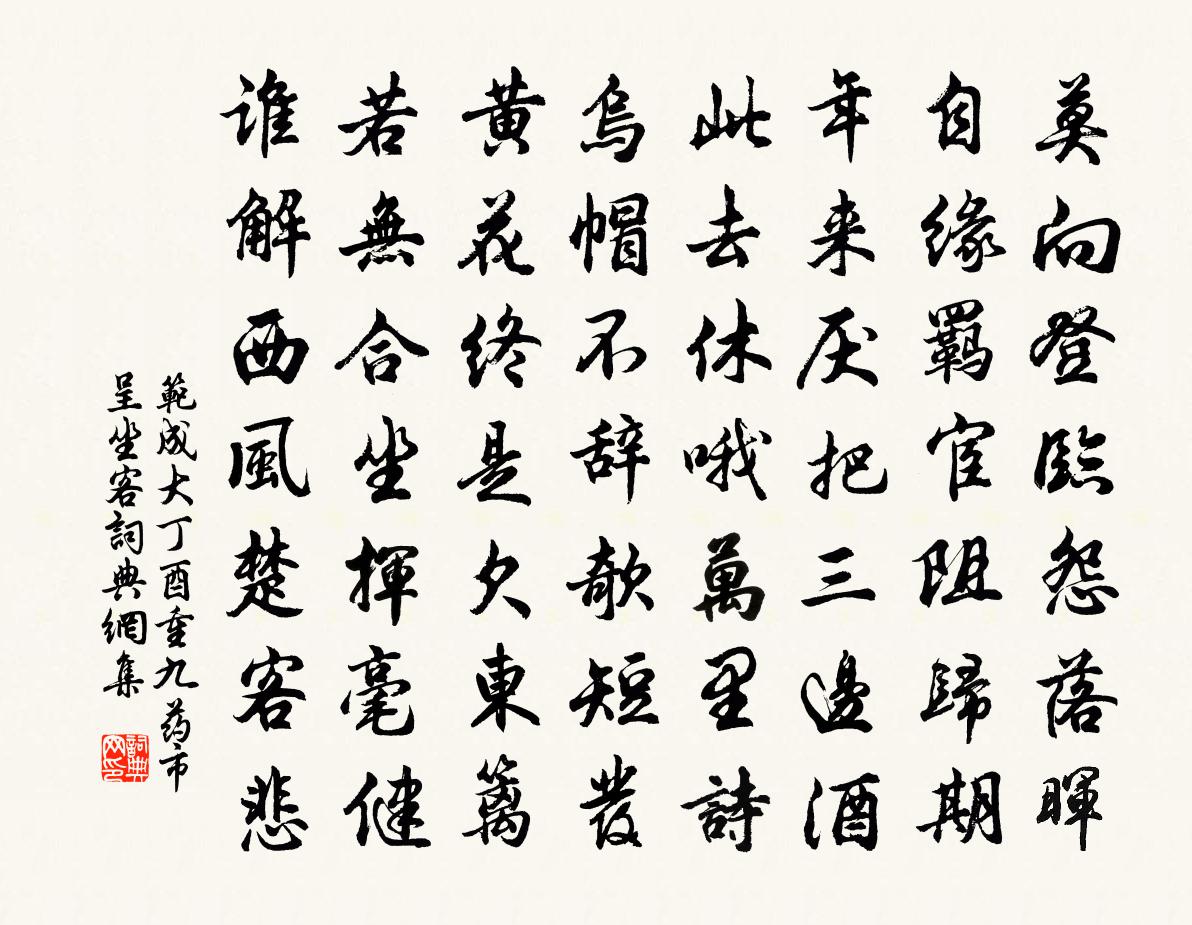 莫向登臨怨落暉
自缘羈宦阻歸期
年来厌把三邊酒
此去休哦萬里詩
烏帽不辞欹短發
黄花终是欠東篱
若無合坐揮毫健
谁解西風楚客悲
範成大丁酉重九药市
呈坐客詞典網集
詞典
网印